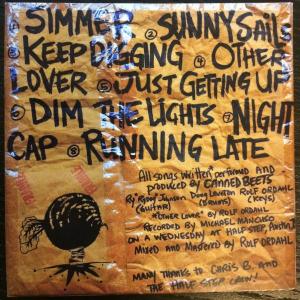 ① SIMMER ② SUNNY SAILS
③ KEEP DIGGING ④ OTHER
LOVER ⑤ JUST GETTING UP
⑥ DIM THE LIGHTS ⑦ NIGHT
CAP ⑧ RUNNING LATE
All songs written performed and
produced by CANNED BEETS
(GUITAR) (DRUMS) ROLF ORDAHL (KEYS)
"OTHER LOVER" BY ROLF ORDAHL
RECORDED BY MICHAEL MANCUSO
ON A WEDNESDAY AT HALF STEP, AUSTIN
Mixed and Mastered by ROLF ORDAHL
MANY THANKS TO CHRIS B. AND
THE HALF STEP CREW!